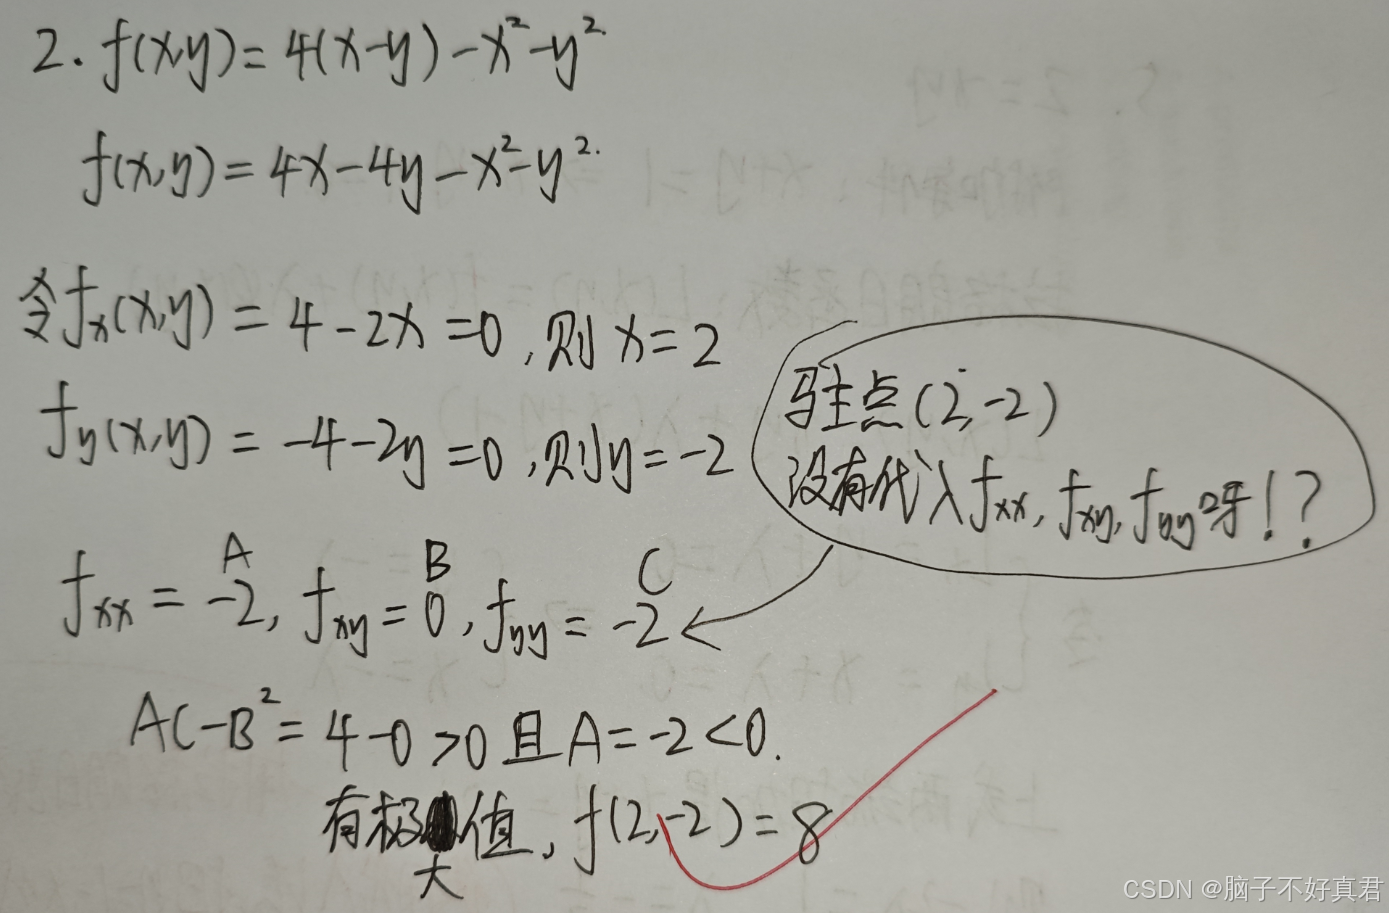 2. f(x,y) = 4(x-y) -x²-y²
f(x,y) = 4x-4y-x²-y².
令fx(x,y) = 4-2x=0,则x=2
fy(x,y) = -4-2y=0,则y=-2
驻点(2,-2)
没有代入fxx,fxy,fyy呀!?
A B C
fxx = -2, fxy = 0, fyy = -2
AC-B² = 4-0>0 且A=-2<0.
有极大值, f(2,-2)=8
CSDN @脑子不好真君